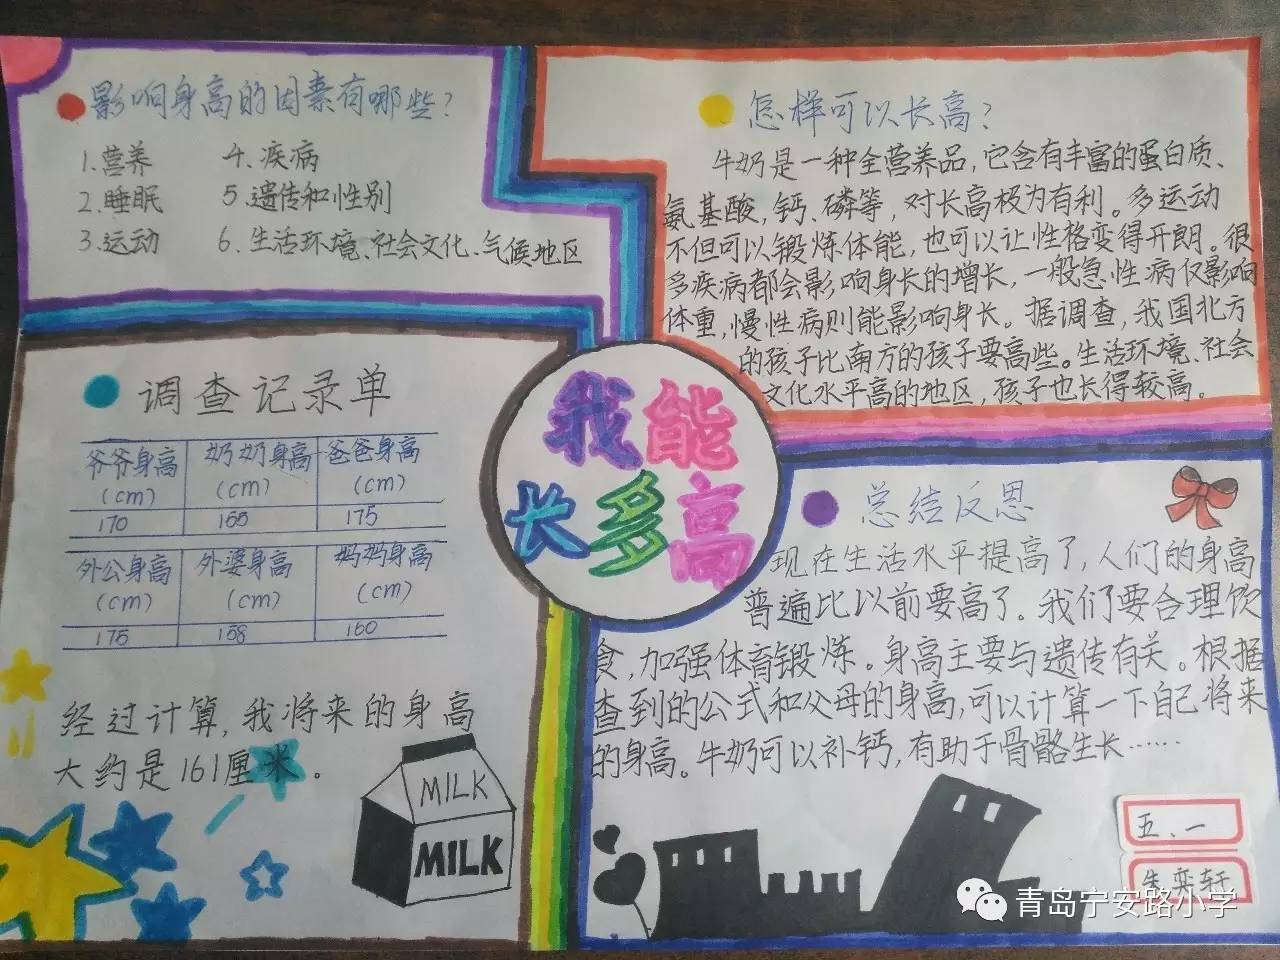 影响身高的因素有哪些？
1.营养
2.睡眠
3.运动
4.疾病
5.遗传和性别
6.生活环境、社会文化、气候地区
怎样可以长高？
牛奶是一种全营养品，它含有丰富的蛋白质、
氨基酸，钙、磷等，对长高极为有利。多运动
不但可以锻炼体能，也可以让性格变得开朗。很
多疾病都会影响身长的增长，一般急性病仅影响
体重，慢性病则能影响身长。据调查，我国北方
的孩子比南方的孩子要高些。生活环境、社会
文化水平高的地区，孩子也长得较高。
我能
长多高
调查记录单
爷爷身高 奶奶身高 爸爸身高
(cm) (cm) (cm)
170 175
外公身高 外婆身高 妈妈身高
(cm) (cm) (cm)
175 158 160
经过计算，我将来的身高
大约是161厘米。
MILK
MILK
总结反思
现在生活水平提高了，人们的身高
普遍比以前要高了。我们要合理饮
食，加强体育锻炼。身高主要与遗传有关。根据
查到的公式和父母的身高，可以计算一下自己将来
的身高。牛奶可以补钙，有助于骨骼生长……
五、一
朱奕轩
青岛宁安路小学